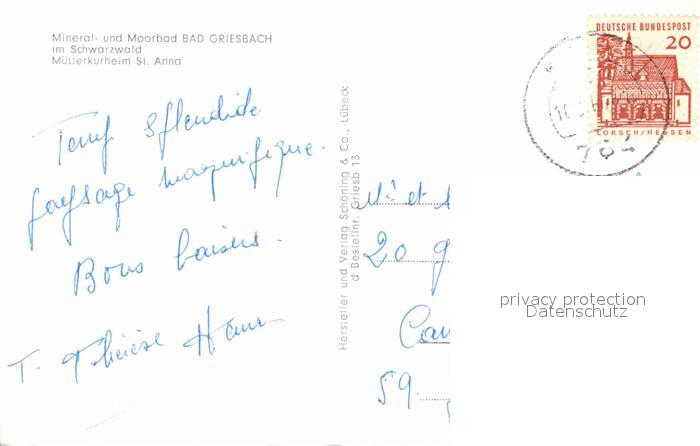 Mineral- und Moorbad BAD GRIESBACH
im Schwarzwald
Mütterkurheim St. Anna
Temps splendide
paysage magnifique.
Bons baisers.
T. Thérèse
Hersteller und Verlag Schöning & Co., Lübeck
Bestellnr. Griesb 13
DEUTSCHE BUNDESPOST
20
LORSCH/HESSEN
et
20
59.
privacy protection
Datenschutz